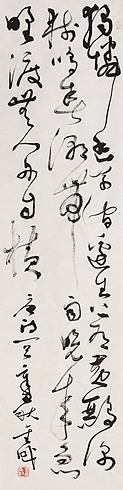 獨憐幽草澗邊生上有黃鸝深
樹鳴春潮帶雨晚來急
野渡無人舟自橫
唐詩一首